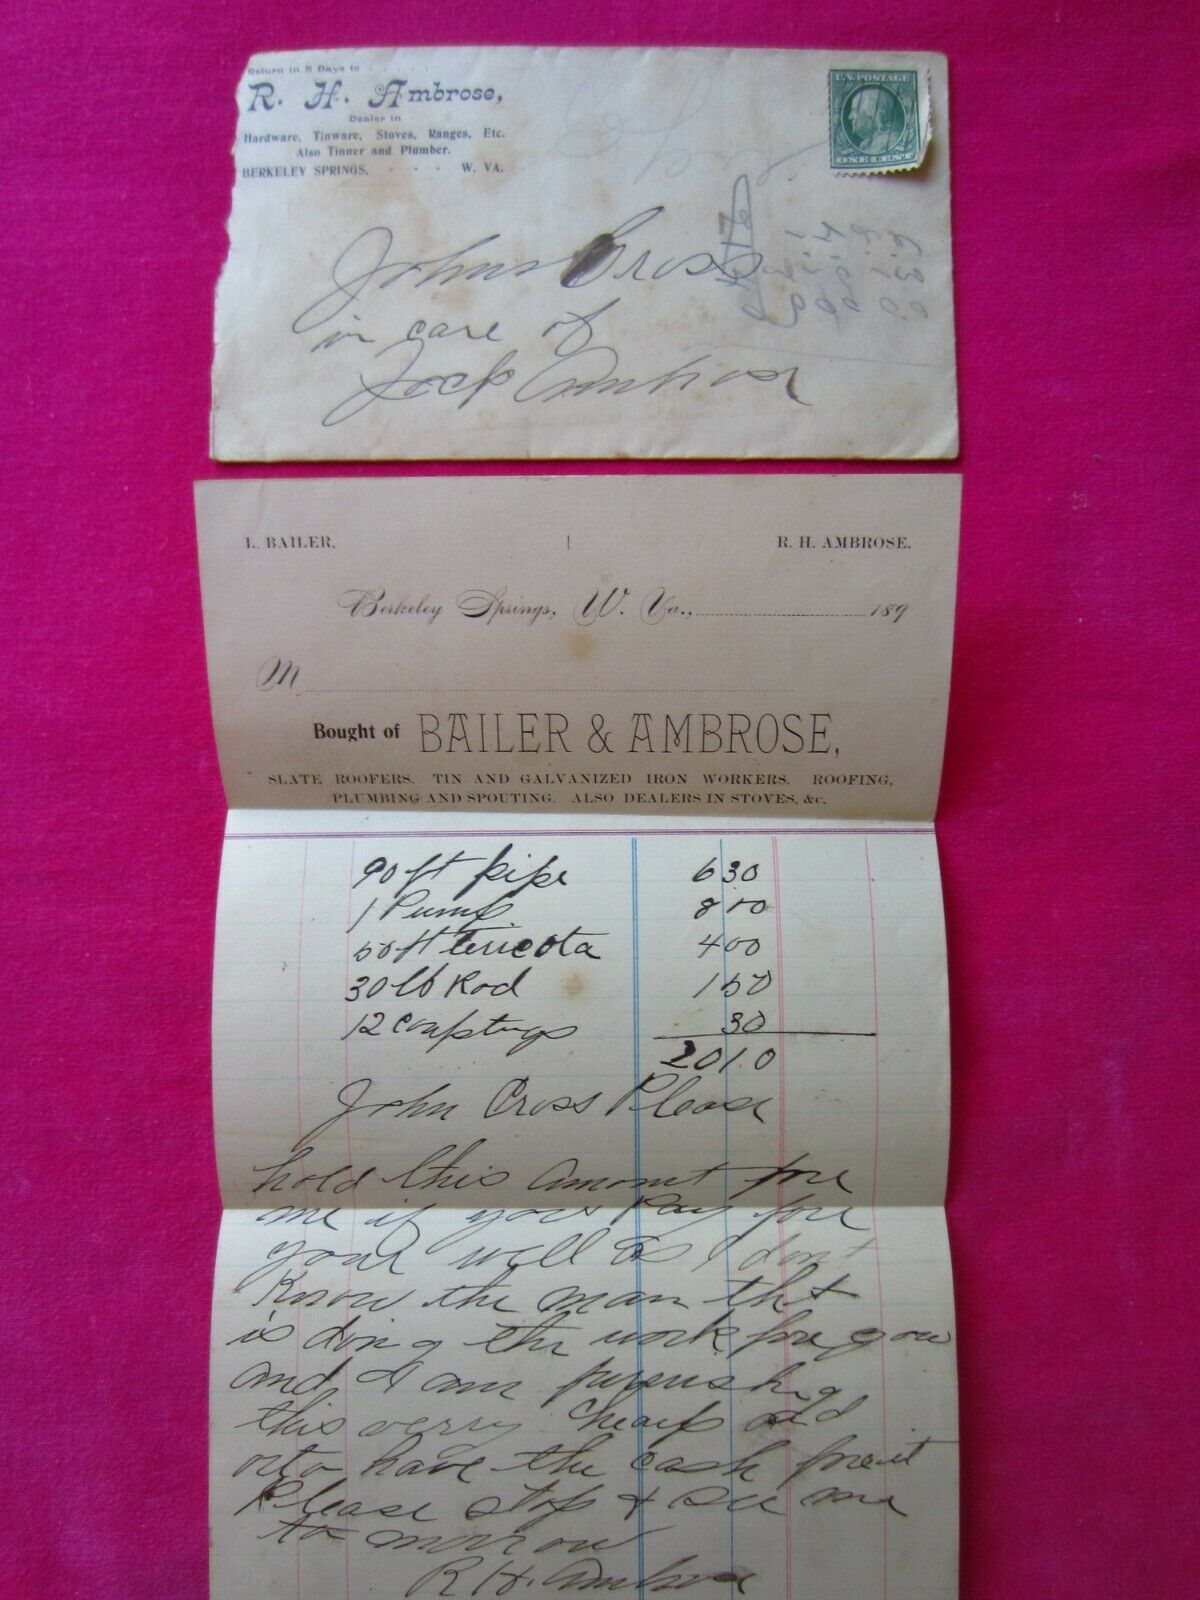 Return in 5 Days to . . . . .
R. H. Ambrose,
Dealer in
Hardware, Tinware, Stoves, Ranges, Etc.
Also Tinner and Plumber.
BERKELEY SPRINGS, - - - W. VA.
U.S. POSTAGE
ONE CENT
John Cross
in care of
Jack Ambrose
L. BAILER. R. H. AMBROSE.
Berkeley Springs, W. Va., 189
M
Bought of BAILER & AMBROSE,
SLATE ROOFERS. TIN AND GALVANIZED IRON WORKERS. ROOFING,
PLUMBING AND SPOUTING. ALSO DEALERS IN STOVES, &c.
90 ft pipe 630
1 Pump 800
50 ft tericota 400
30 lb Rod 150
12 couplings 30
2010
John Cross Please
hold this amount fore
me if you Pay fore
your well as I dont
Know the man tht
is doing the work fore you
and I am furnushing
this verry cheap and
orto have the cash fore it
Please stop & see me
to morrow
R H. Ambrose